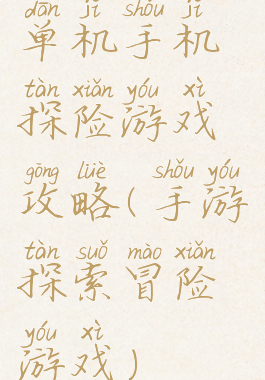 dān jī shǒu jī
单机手机
tàn xiǎn yóu xì
探险游戏
gōng lüè shǒu yóu
攻略(手游
tàn suǒ mào xiǎn
探索冒险
yóu xì
游戏)